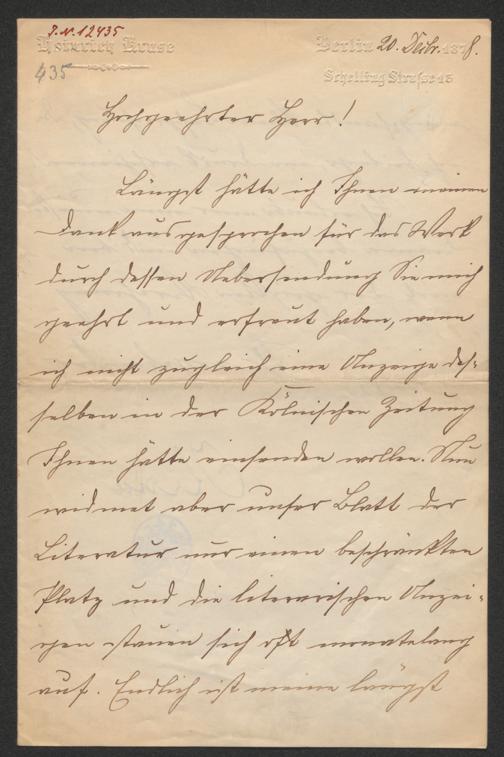 J.N. 12435
Heinrich Kruse
Berlin 20. Decbr. 1878.
435
Schelling Strasse 15
Hochgeehrter Herr!
Längst hätte ich Ihnen meinen
Dank ausgesprochen für das Werk
durch dessen Uebersendung Sie mich
geehrt und erfreut haben, wenn
ich nicht zugleich eine Anzeige des-
selben in der Kölnischen Zeitung
Ihnen hätte einsenden wollen. Nun
widmet aber unser Blatt der
Literatur nur einen beschränkten
Platz und die literarischen Anzei-
gen stauen sich oft monatelang
auf. Endlich ist meine längst